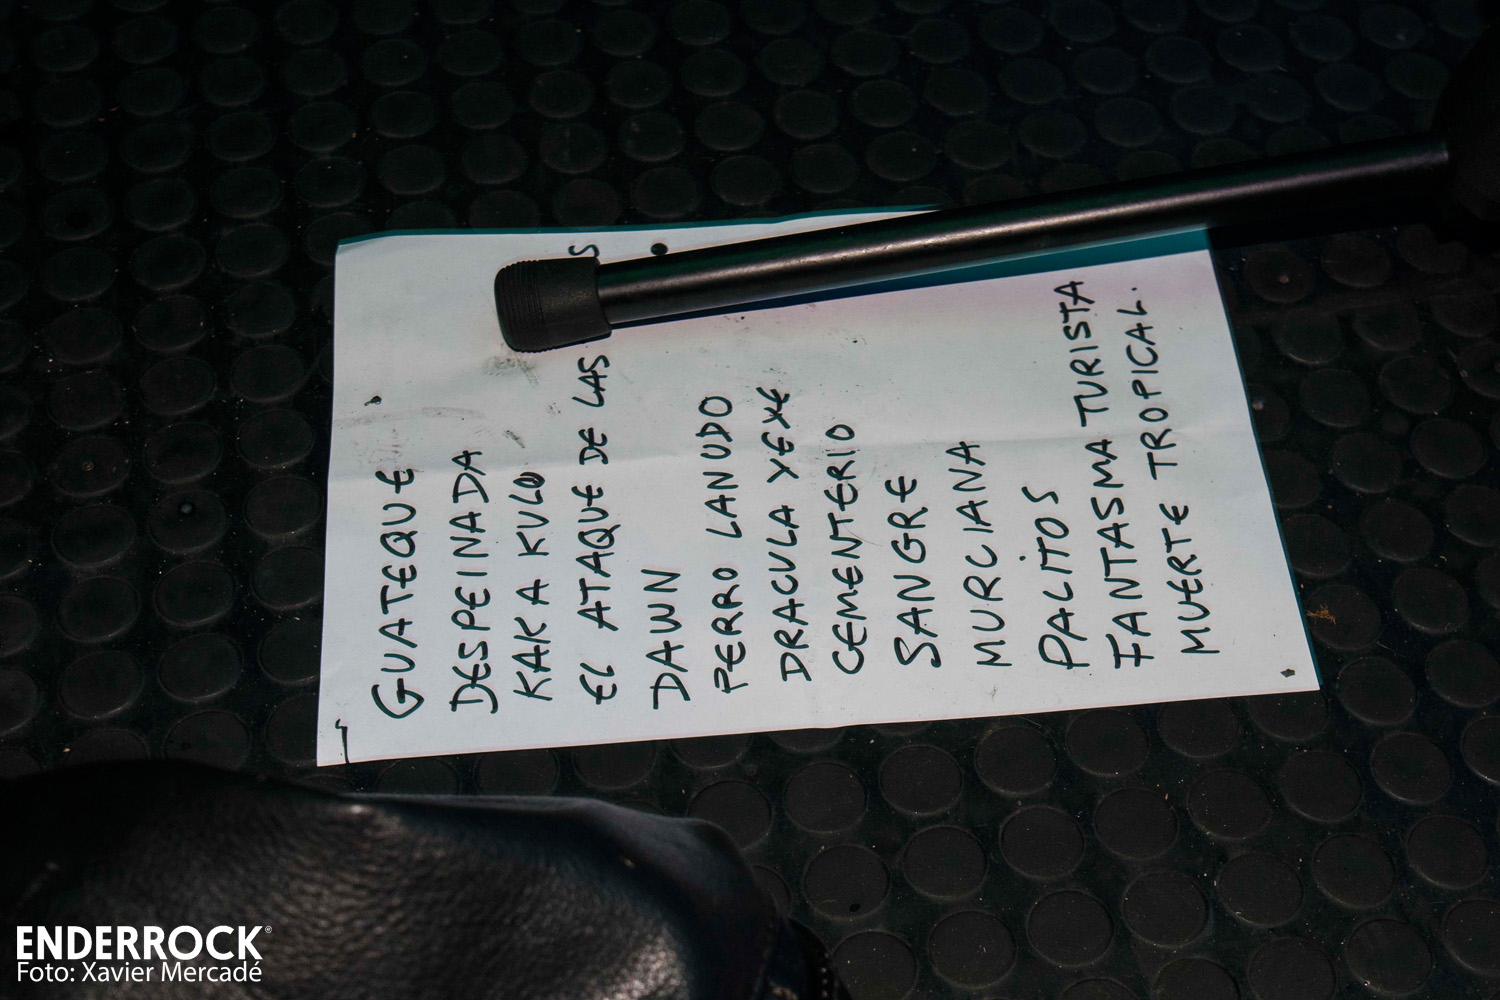 GUATEQUE
DESPEINADA
KAKA KULO
EL ATAQUE DE LAS
DAWN
PERRO LANUDO
DRACULA YEYE
CEMENTERIO
SANGRE
MURCIANA
PALITOS
FANTASMA TURISTA
MUERTE TROPICAL.
ENDERROCK®
Foto: Xavier Mercadé